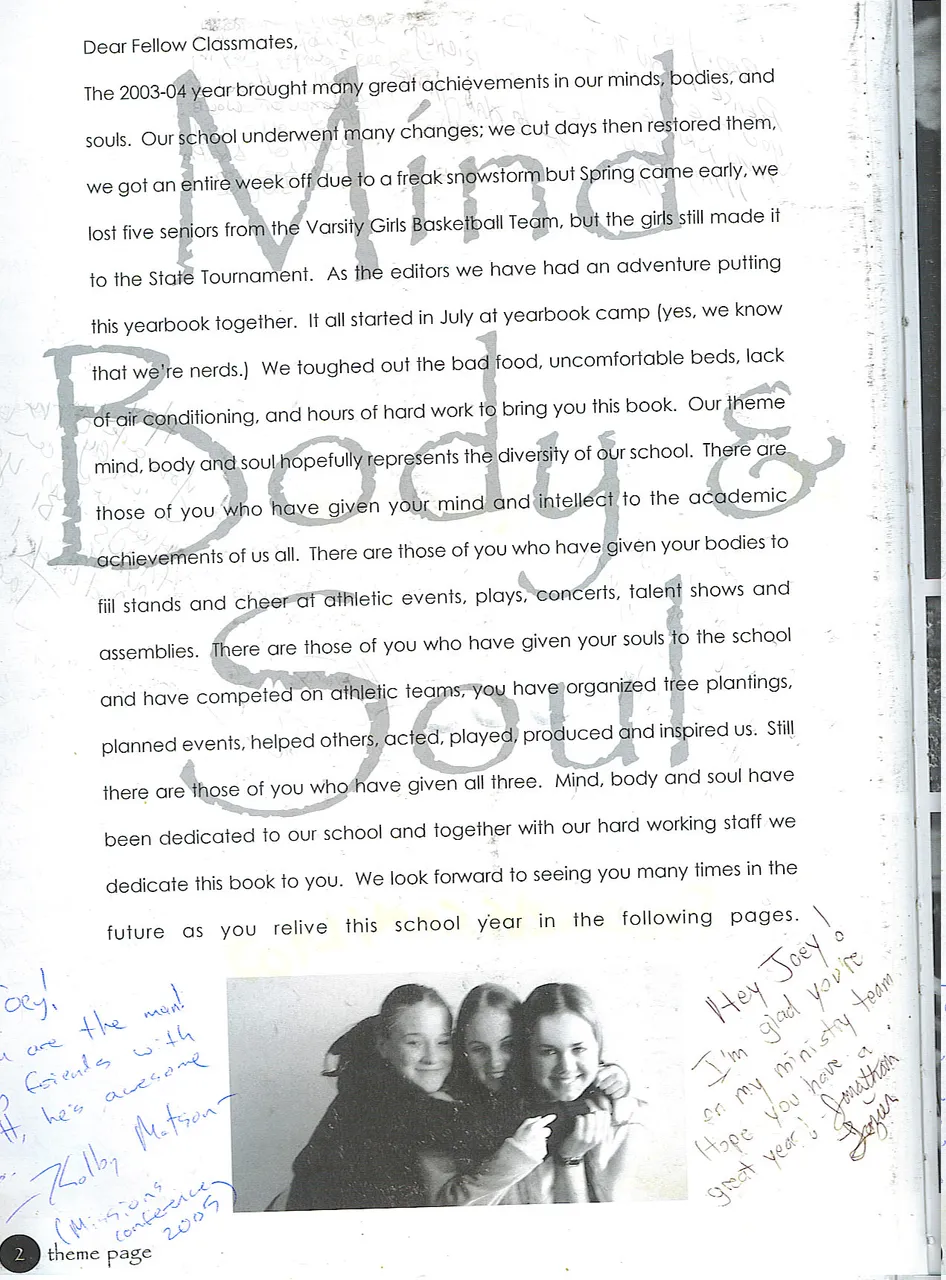 Dear Fellow Classmates,
The 2003-04 year brought many great achievements in our minds, bodies, and
souls. Our school underwent many changes; we cut days then restored them,
we got an entire week off due to a freak snowstorm but Spring came early, we
lost five seniors from the Varsity Girls Basketball Team, but the girls still made it
to the State Tournament. As the editors we have had an adventure putting
this yearbook together. It all started in July at yearbook camp (yes, we know
that we're nerds.) We toughed out the bad food, uncomfortable beds, lack
of air conditioning, and hours of hard work to bring you this book. Our theme
mind, body and soul hopefully represents the diversity of our school. There are
those of you who have given your mind and intellect to the academic
achievements of us all. There are those of you who have given your bodies to
fiil stands and cheer at athletic events, plays, concerts, talent shows and
assemblies. There are those of you who have given your souls to the school
and have competed on athletic teams, you have organized tree plantings,
planned events, helped others, acted, played, produced and inspired us. Still
there are those of you who have given all three. Mind, body and soul have
been dedicated to our school and together with our hard working staff we
dedicate this book to you. We look forward to seeing you many times in the
future as you relive this school year in the following pages.
Mind
Body &
Soul
Joey!
are the man!
friends with
he's awesome
Kolby Matson
(Missions
conference
2005)
Hey Joey!
I'm glad you're
on my ministry team.
Hope you have a
great year! Jonathan
2 theme page